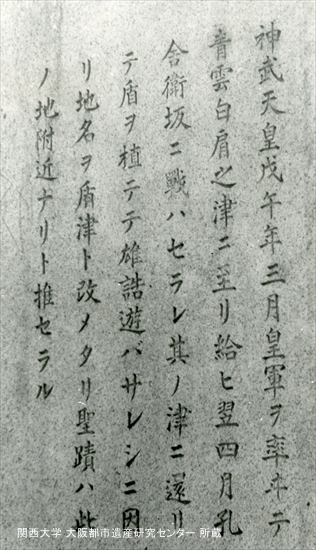 神武天皇戊午年三月皇軍ヲ率ヰテ
青雲白肩之津ニ至リ給ヒ翌四月孔
舎衛坂ニ戰ハセラレ其ノ津ニ還リ
テ盾ヲ植テテ雄誥遊バサレシニ因
リ地名ヲ盾津ト改メタリ聖蹟ハ此
ノ地附近ナリト推セラル
関西大学 大阪都市遺産研究センター 所蔵